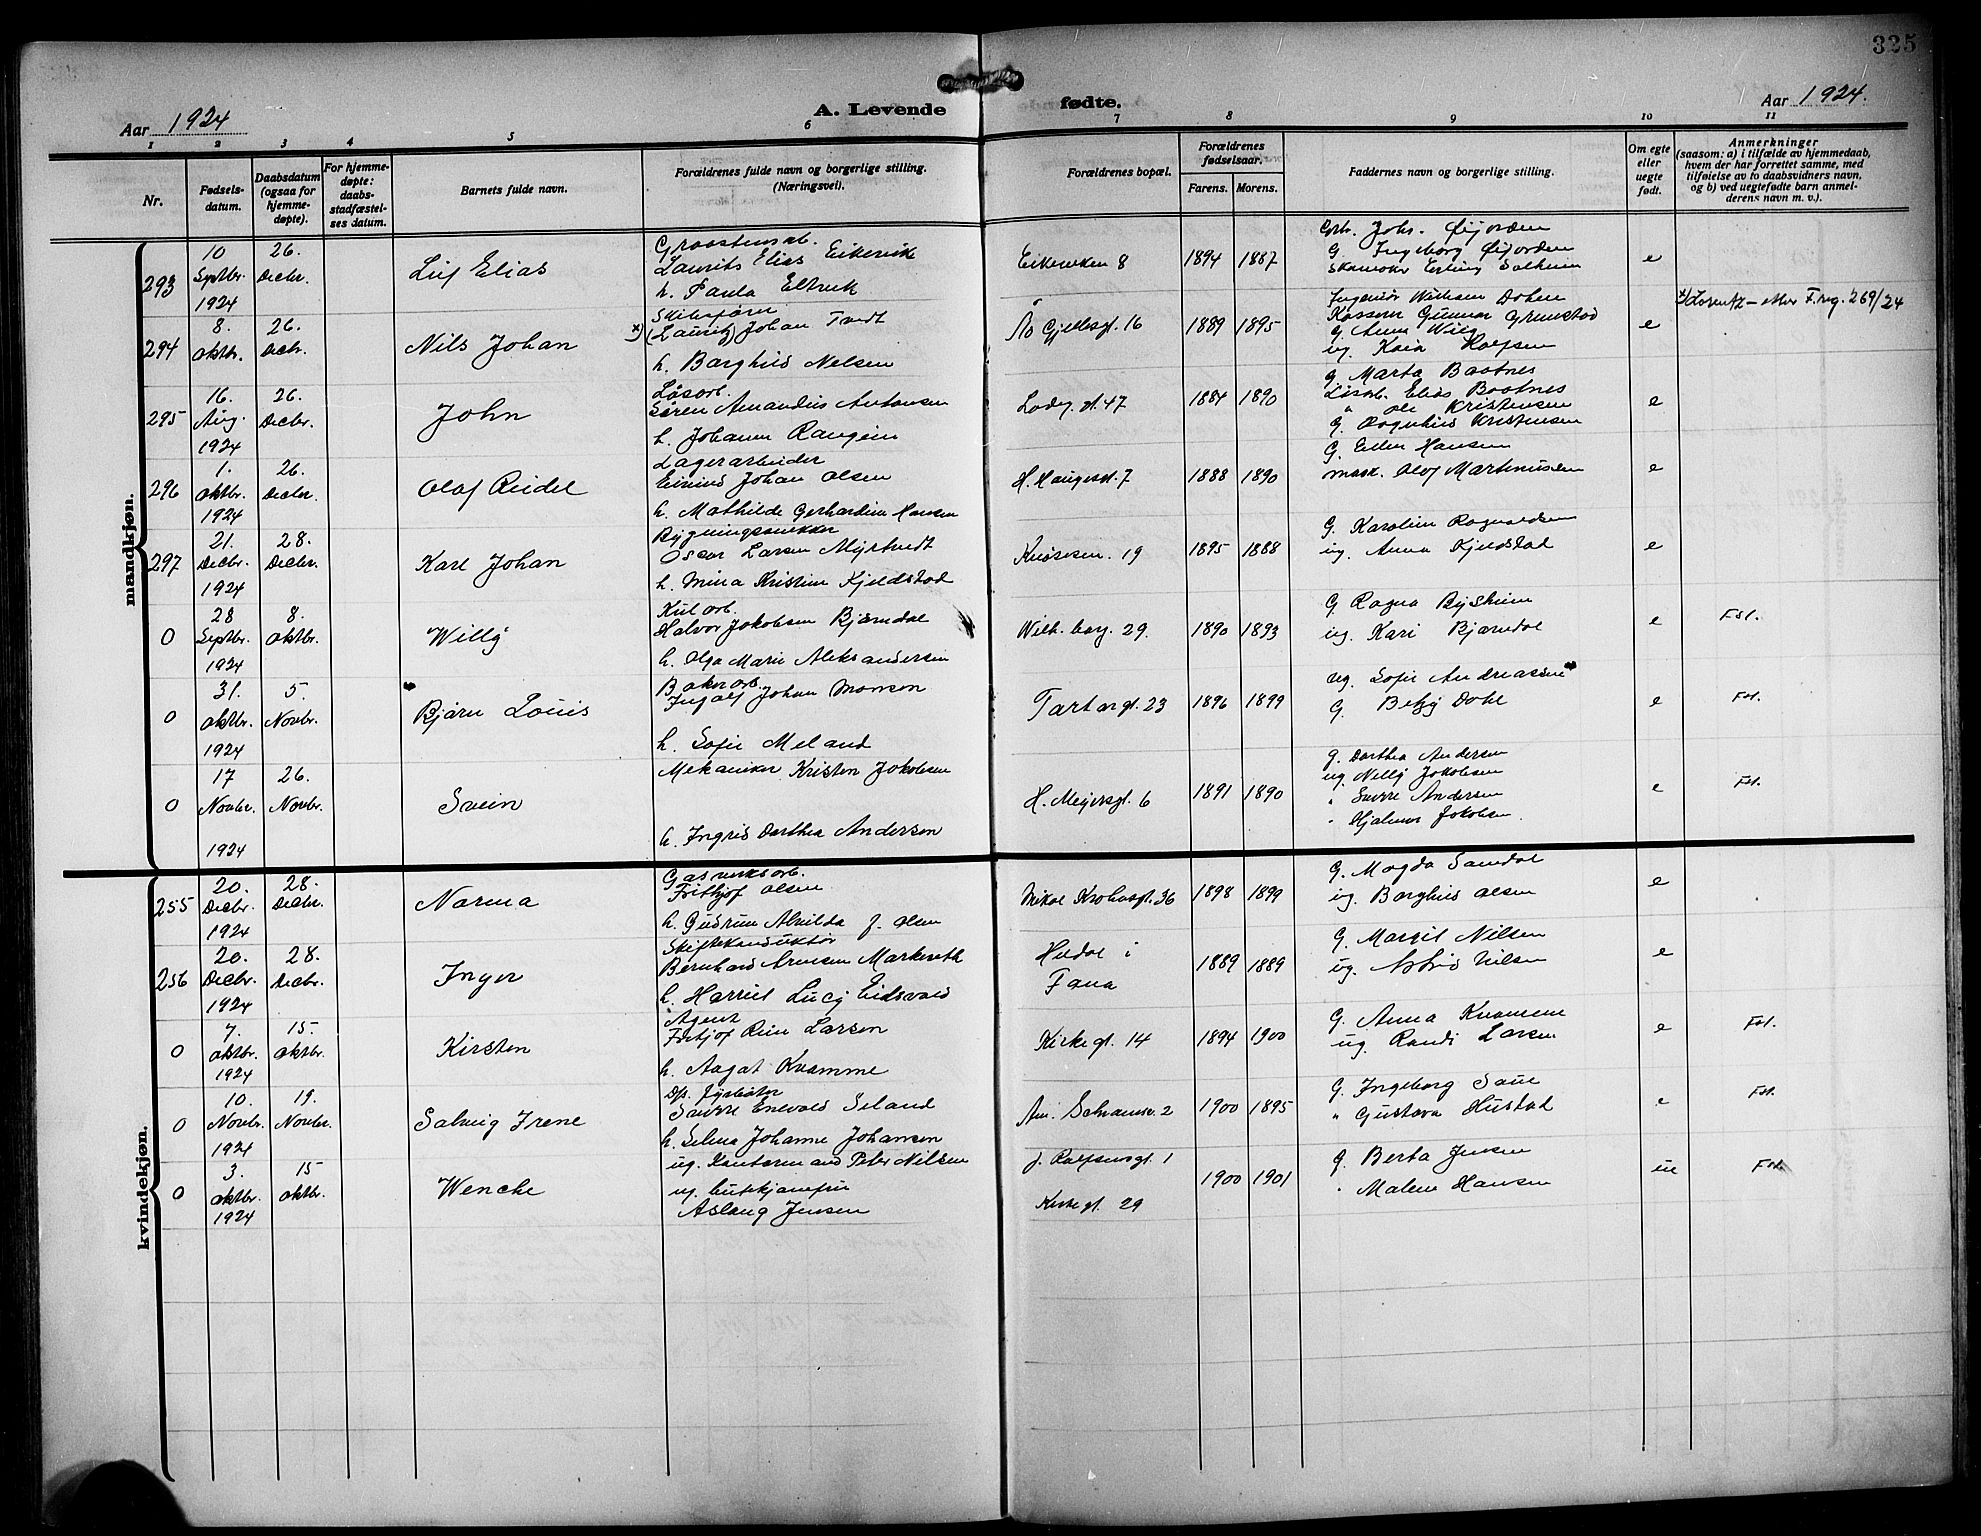 325
Aar 1924
A. Levende
fødte.
Aar 1924.
1 2 3 4 5 6 7 8 9 10 11
Nr.
Fødsels-
datum.
Daabsdatum
(ogsaa for
hjemme-
døpte).
For hjemme-
døpte:
daabs-
stadfæstel-
ses datum.
Barnets fulde navn.
Forældrenes fulde navn og borgerlige stilling.
(Næringsvei).
Forældrenes bopæl.
Forældrenes
fødselsaar.
Farens. Morens.
Faddernes navn og borgerlige stilling.
Om egte
eller
uegte
født.
Anmerkninger
(saasom: a) i tilfælde av hjemmedaab,
hvem der har forrettet samme, med
tilføielse av to daabsvidners navn,
og b) ved uegtefødte barn anmel-
derens navn m. v.).
mandkjøn.
293
10
Septbr.
1924
26.
Decbr.
Leif Elias
Laurits Elias Eikevik
h. Paula
Eikeveken 8
1894 1887
G. Ingeborg Øijorden
Erling Solheim
e
294
8.
oktbr.
26.
Decbr.
Nils Johan
x) (Lauritz) Johan Tvedt
h. Borghild Nelsen
16
1889 1895
Gunnar Grimstad
G. Anna
ug. Kaia
e
x) Lorentz - efter F.reg. 269/24
295
16.
Aug.
1924
26.
Decbr.
John
Løsarb.
Søren Amandus Antonsen
h. Johanne
Ladeg. gt. 47
1884 1890
G. Marta Baatnes
Løsarb. Elias Baatnes
" Ole Kristensen
G. Ragnhild Kristensen
e
296
1.
oktbr.
1924
26.
Decbr.
Olaf Reidel
Lagerarbeider
Johan Olsen
h. Mathilde Gerhardine Hansen
H. Haugesgt. 7
1888 1890
G. Hansen
mask. Olaf Martinussen
e
297
21.
Decbr.
1924
28.
Decbr.
Karl Johan
Bygningssnekker
Oscar Larsen Myrtvedt
h. Mina Kristine Kjeldstad
Knøsesm. 19
1895 1888
G. Karoline Ragnvaldsen
ug. Anna Kjeldstad
e
0
28
Septbr.
1924
8.
oktbr.
Willy
Kularb.
Halvor Jakobsen Bjørndal
h. Olga Marie Aleksandersen
Wilh. berg. 29.
1890 1893
G. Ragna
ug. Kari Bjørndal
e
Fst.
0
31.
oktbr.
1924
5.
Novbr.
Bjørn Louis
Bakerarb.
Ingolf Johan Monsen
h. Sofie Meland
Tartargt. 23
1896 1899
ug. Sofie Andreassen
G. Betzy Dahl
e
Fst.
0
17
Novbr.
1924
26.
Novbr.
Svein
Mekaniker Kristen Jakobsen
h. Ingrid Dorthea Andersen
H. Meyersgt. 6
1891 1890
G. Dorthea Andersen
ug. Nelly Jakobsen
" Sverre Andersen
" Hjalmar Jakobsen.
e
Fst.
kvindekjøn.
255
20.
Decbr.
1924
28.
Decbr.
Norma
Gasverksarb.
Fritjof Olsen
h. Gudrun Alvilda f. Olsen
Nikol Krohnsgt. 36
1898 1899
G. Magda Samdal
ug. Borghild Olsen
e
256
20.
Decbr.
1924
28.
Decbr.
Inger
Skiftekonduktør
Bernhard Arnesen Markereth
h. Harriet Lucy Eidsvold
Hildal i
Fana
1889 1889
G. Margit Nilsen
ug. Astrid Nilsen
e
0
7.
oktbr.
1924
15.
oktbr.
Kirsten
Agent
Fritjof Rein Larsen
h. Aagot Kvamme
Kirkegt. 14
1894 1900
G. Anna Kvamme
ug. Randi Larsen
e
Fst.
0
10.
Novbr.
1924
19.
Novbr.
Solveig Irene
D/s. fyrbøter
Sverre Enevald Seland
h. Selma Johanne Johansen
Am. Schramsv. 2
1900 1895
G. Ingeborg Saue
" Gustava Hustad
e
Fst.
0
3.
oktbr.
1924
15
oktbr.
Wenche
ug. Kontormand Peter Nilsen
ug.
Aslaug Jensen
J. Rolfsensgt. 1
Kirkegt. 29
1900 1901
G. Berta Jensen
" Malene Hansen
ue
Fst.